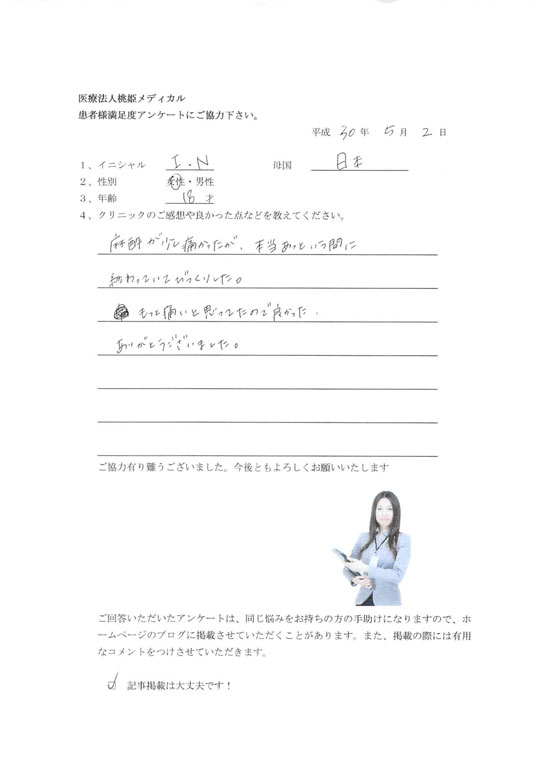 医療法人桃姫メディカル
患者様満足度アンケートにご協力下さい。
平成 30 年 5 月 2 日
1、イニシャル I.N 母国 日本
2、性別 女性・男性
3、年齢 18 才
4、クリニックのご感想や良かった点などを教えてください。
麻酔が少し痛かったが、本当あっという間に
終わっていてびっくりした。
もっと痛いと思ってたので良かった.
ありがとうございました。
ご協力有り難うございました。今後ともよろしくお願いいたします
ご回答いただいたアンケートは、同じ悩みをお持ちの方の手助けになりますので、ホ
ームページのブログに掲載させていただくことがあります。また、掲載の際には有用
なコメントをつけさせていただきます。
記事掲載は大丈夫です！